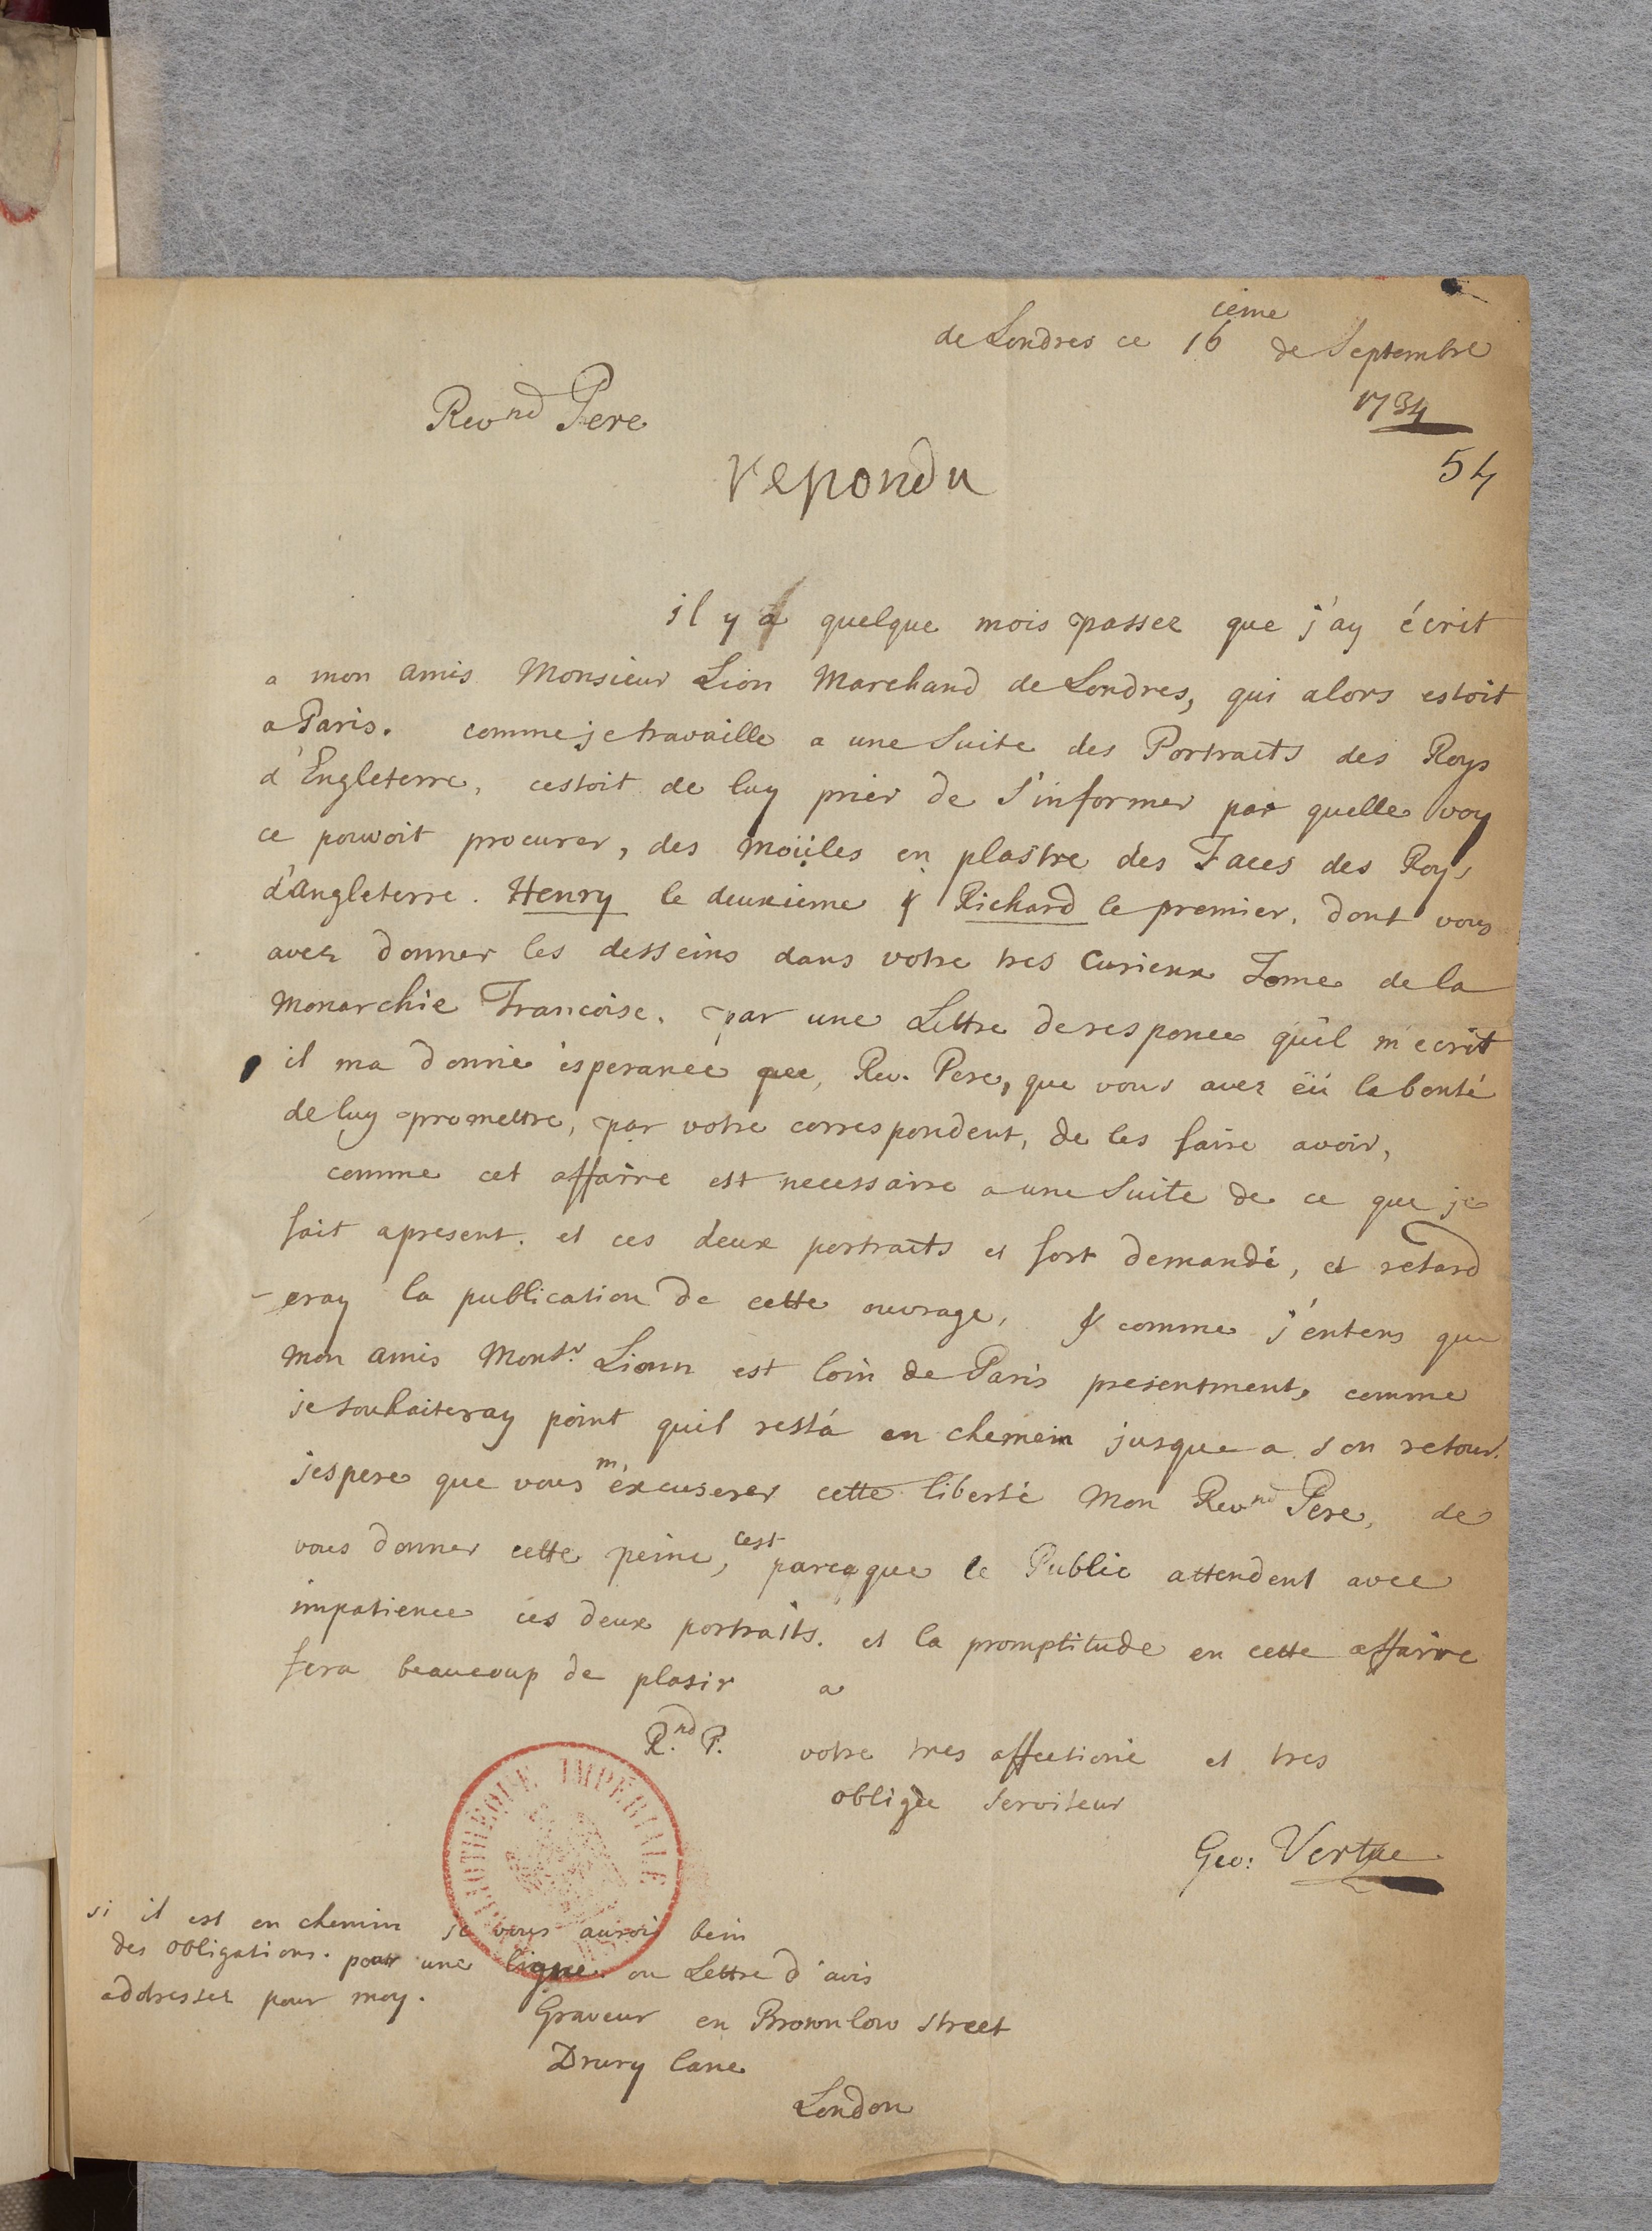 de Londres ce 16 ieme de Septembre
1734
Revnd Pere
54
repondu
il y a quelque mois passee que j'ay écrit
a mon amis Monsieur Lion Marchand de Londres, qui alors estoit
a Paris. comme je travaille a une Suite des Portraits des Roys
d'Engleterre, cestoit de luy prier de S'informer par quelle voy
ce pouvoit procurer, des moüles en plastre des Faces des Roys
d'Angleterre. Henry le deuxieme & Richard le premier, dont vous
avez donner les desseins dans votre tres Curieux Tome de la
Monarchie Francoise. par une Lettre de responce quil m'ecrit
il ma donné esperance que, Rev. Pere, que vous avez eü la bonté
de luy promettre, par votre correspondent, de les faire avoir,
comme cet affaire est necessaire a une Suite de ce que je
fait apresent. et ces deux portraits et fort demandé, et retard
-eray la publication de cette ouvrage, & comme j'entens que
mon amis Monsr. Lionn est loin de Paris presentment, comme
je souhaiteray point quil resta en chemein jusque a son retour.
jespere que vous m'excuserer cette liberté Mon Revnd Pere, de
vous donner cette peine, cest parceque le Public attendent avec
impatience ces deux portraits. et la promptitude en cette affaire
fera beaucoup de plasir a
R.nd P. votre tres affectioné et tres
obligée Serviteur
Geo: Vertue
BIBLIOTHEQUE IMPÉRIALE
si il est en chemin je vous aurois bein
des obligations. pour une ligne. ou Lettre d'avis
addresser pour moy.
Graveur en Brownlow Street
Drury lane
London